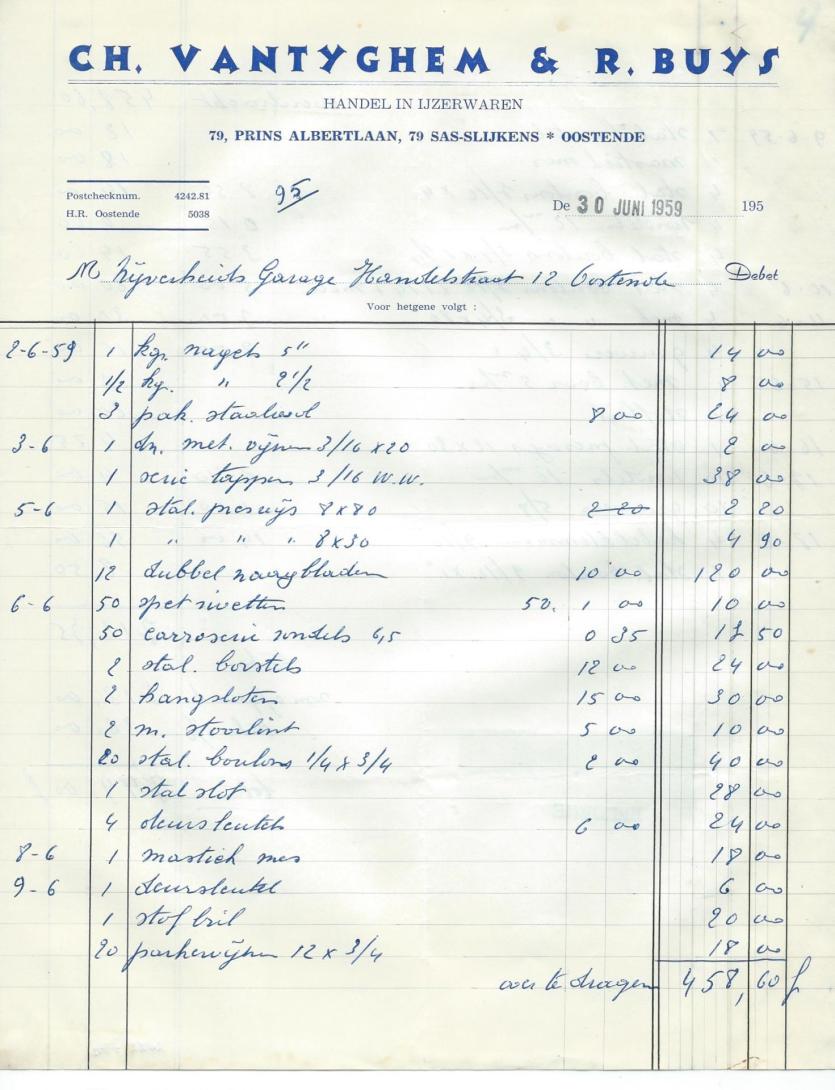 CH. VANTYGHEM & R. BUYS
HANDEL IN IJZERWAREN
79, PRINS ALBERTLAAN, 79 SAS-SLIJKENS * OOSTENDE
Postchecknum. 4242.81
H.R. Oostende 5038
95
De 30 JUNI 1959 195
M Nijverheids Garage Handelstraat 12 Oostende Debet
Voor hetgene volgt :
2-6-59 1 kgr. nagels 5" 14 00
1/2 kg. " 2 1/2 8 00
3 pak. staalwol 8 00 24 00
3-6 1 dz. met. vijzen 3/16 x 20 2 00
1 serie tappen 3/16 W.W. 38 00
5-6 1 stal. 8x80 2 20 2 20
1 " " " 8x30 4 90
12 dubbel zaagbladen 10 00 120 00
6-6 50 rivetten 50. 1 00 10 00
50 carroserie rondels 6,5 0 35 17 50
2 stal. borstels 12 00 24 00
2 hangsloten 15 00 30 00
2 m. stoorlint 5 00 10 00
20 stal. boulons 1/4 x 3/4 2 00 40 00
1 stal slot 28 00
4 deursleutels 6 00 24 00
8-6 1 mastiek mes 18 00
9-6 1 deursleutel 6 00
1 stofbril 20 00
20 parkervijzen 12 x 3/4 18 00
over te dragen 458,60 f